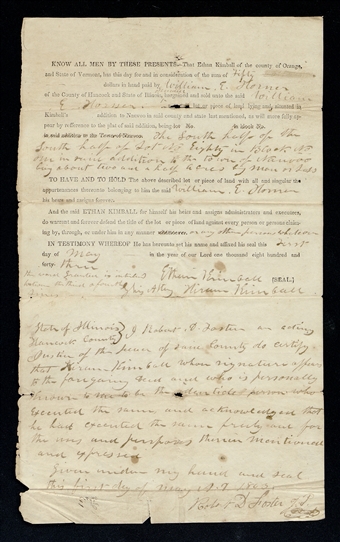 KNOW ALL MEN BY THESE PRESENTS—That Ethan Kimball of the county of Orange,
and State of Vermont, has this day for and in consideration of the sum of Fifty
dollars in hand paid by William E. Horner
of the County of Hancock and State of Illinois, bargained and sold unto the said William
E. Horner lot or piece of land lying and situated in
Kimball's addition to Nauvoo in said county and state last mentioned, as will more fully ap-
pear by reference to the plat of said addition, being lot No. in block No.
in said addition to the Town of Nauvoo. The South half of the
South half of Lot No Eighty in Block No
in same addition to the town of
about two and a half acres by more or less
TO HAVE AND TO HOLD The above described lot or piece of land with all and singular the
appurtenances thereunto belonging to him the said William E. Horner
his heirs and assigns forever.
And the said ETHAN KIMBALL for himself his heirs and assigns administrators and executors,
do warrant and forever defend the title of the lot or piece of land against every person or persons claim-
ing by, through, or under him in any manner or any other persons whatsoever
IN TESTIMONY WHEREOF He has hereunto set his name and affixed his seal this first
day of May in the year of our Lord one thousand eight hundred and
forty three
Ethan Kimball [SEAL.]
by his Atty Hiram Kimball
State of Illinois
Hancock County I Robert D. Foster an acting
Justice of the peace of said County do certify
that Hiram Kimball whose signature appears
to the foregoing deed and who is personally
known to me to be the identical person who
executed the same and acknowledged that
he had executed the same freely and for
the uses and purposes therein mentioned
and expressed
Given under my hand and seal
this first day of may A.D.
Robert D. Foster